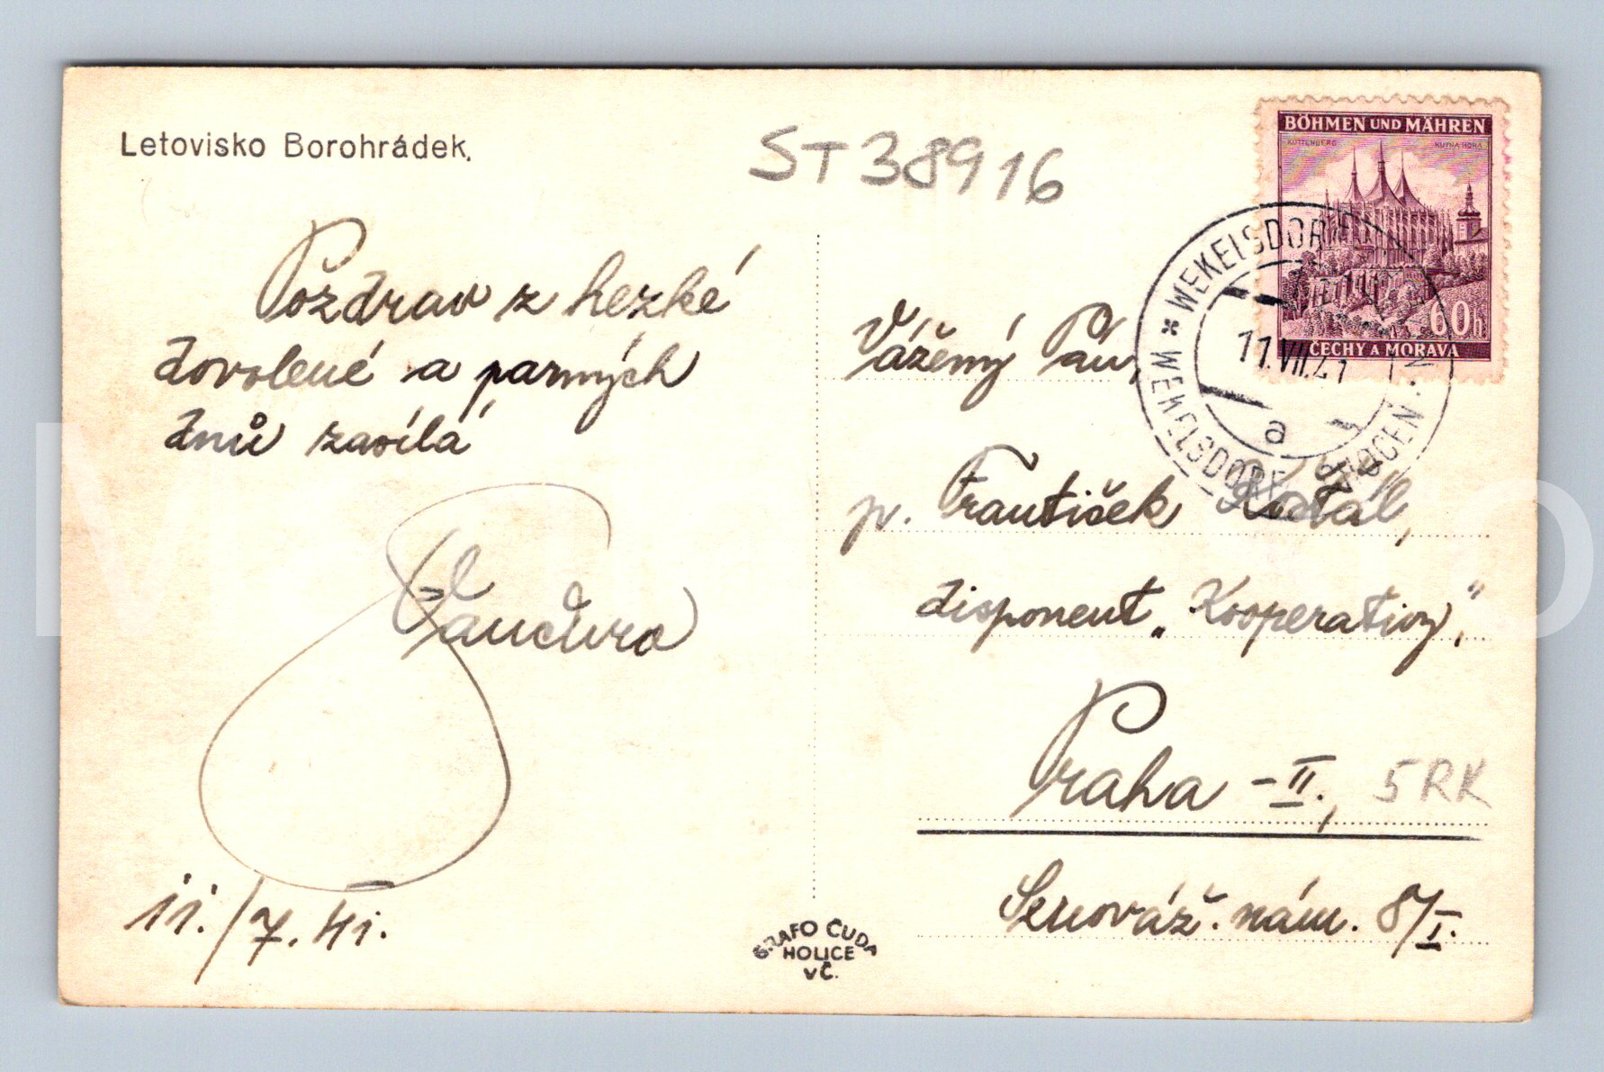 Letovisko Borohrádek.
ST38916
Pozdrav z hezké
dovolené a parných
dnů zasílá
11./7.41.
GRAFO ČUDA
HOLICE
v Č.
BÖHMEN UND MÄHREN
KUTTENBERG KUTNÁ HORA
60h
ČECHY A MORAVA
WEKELSDORF
11.VII.41
a
WEKELSDORF
CHOCEN
Vážený Pán,
p. František
disponent „Kooperativy,"
Praha -II., 5RK
Senováž. nám. 8/I.